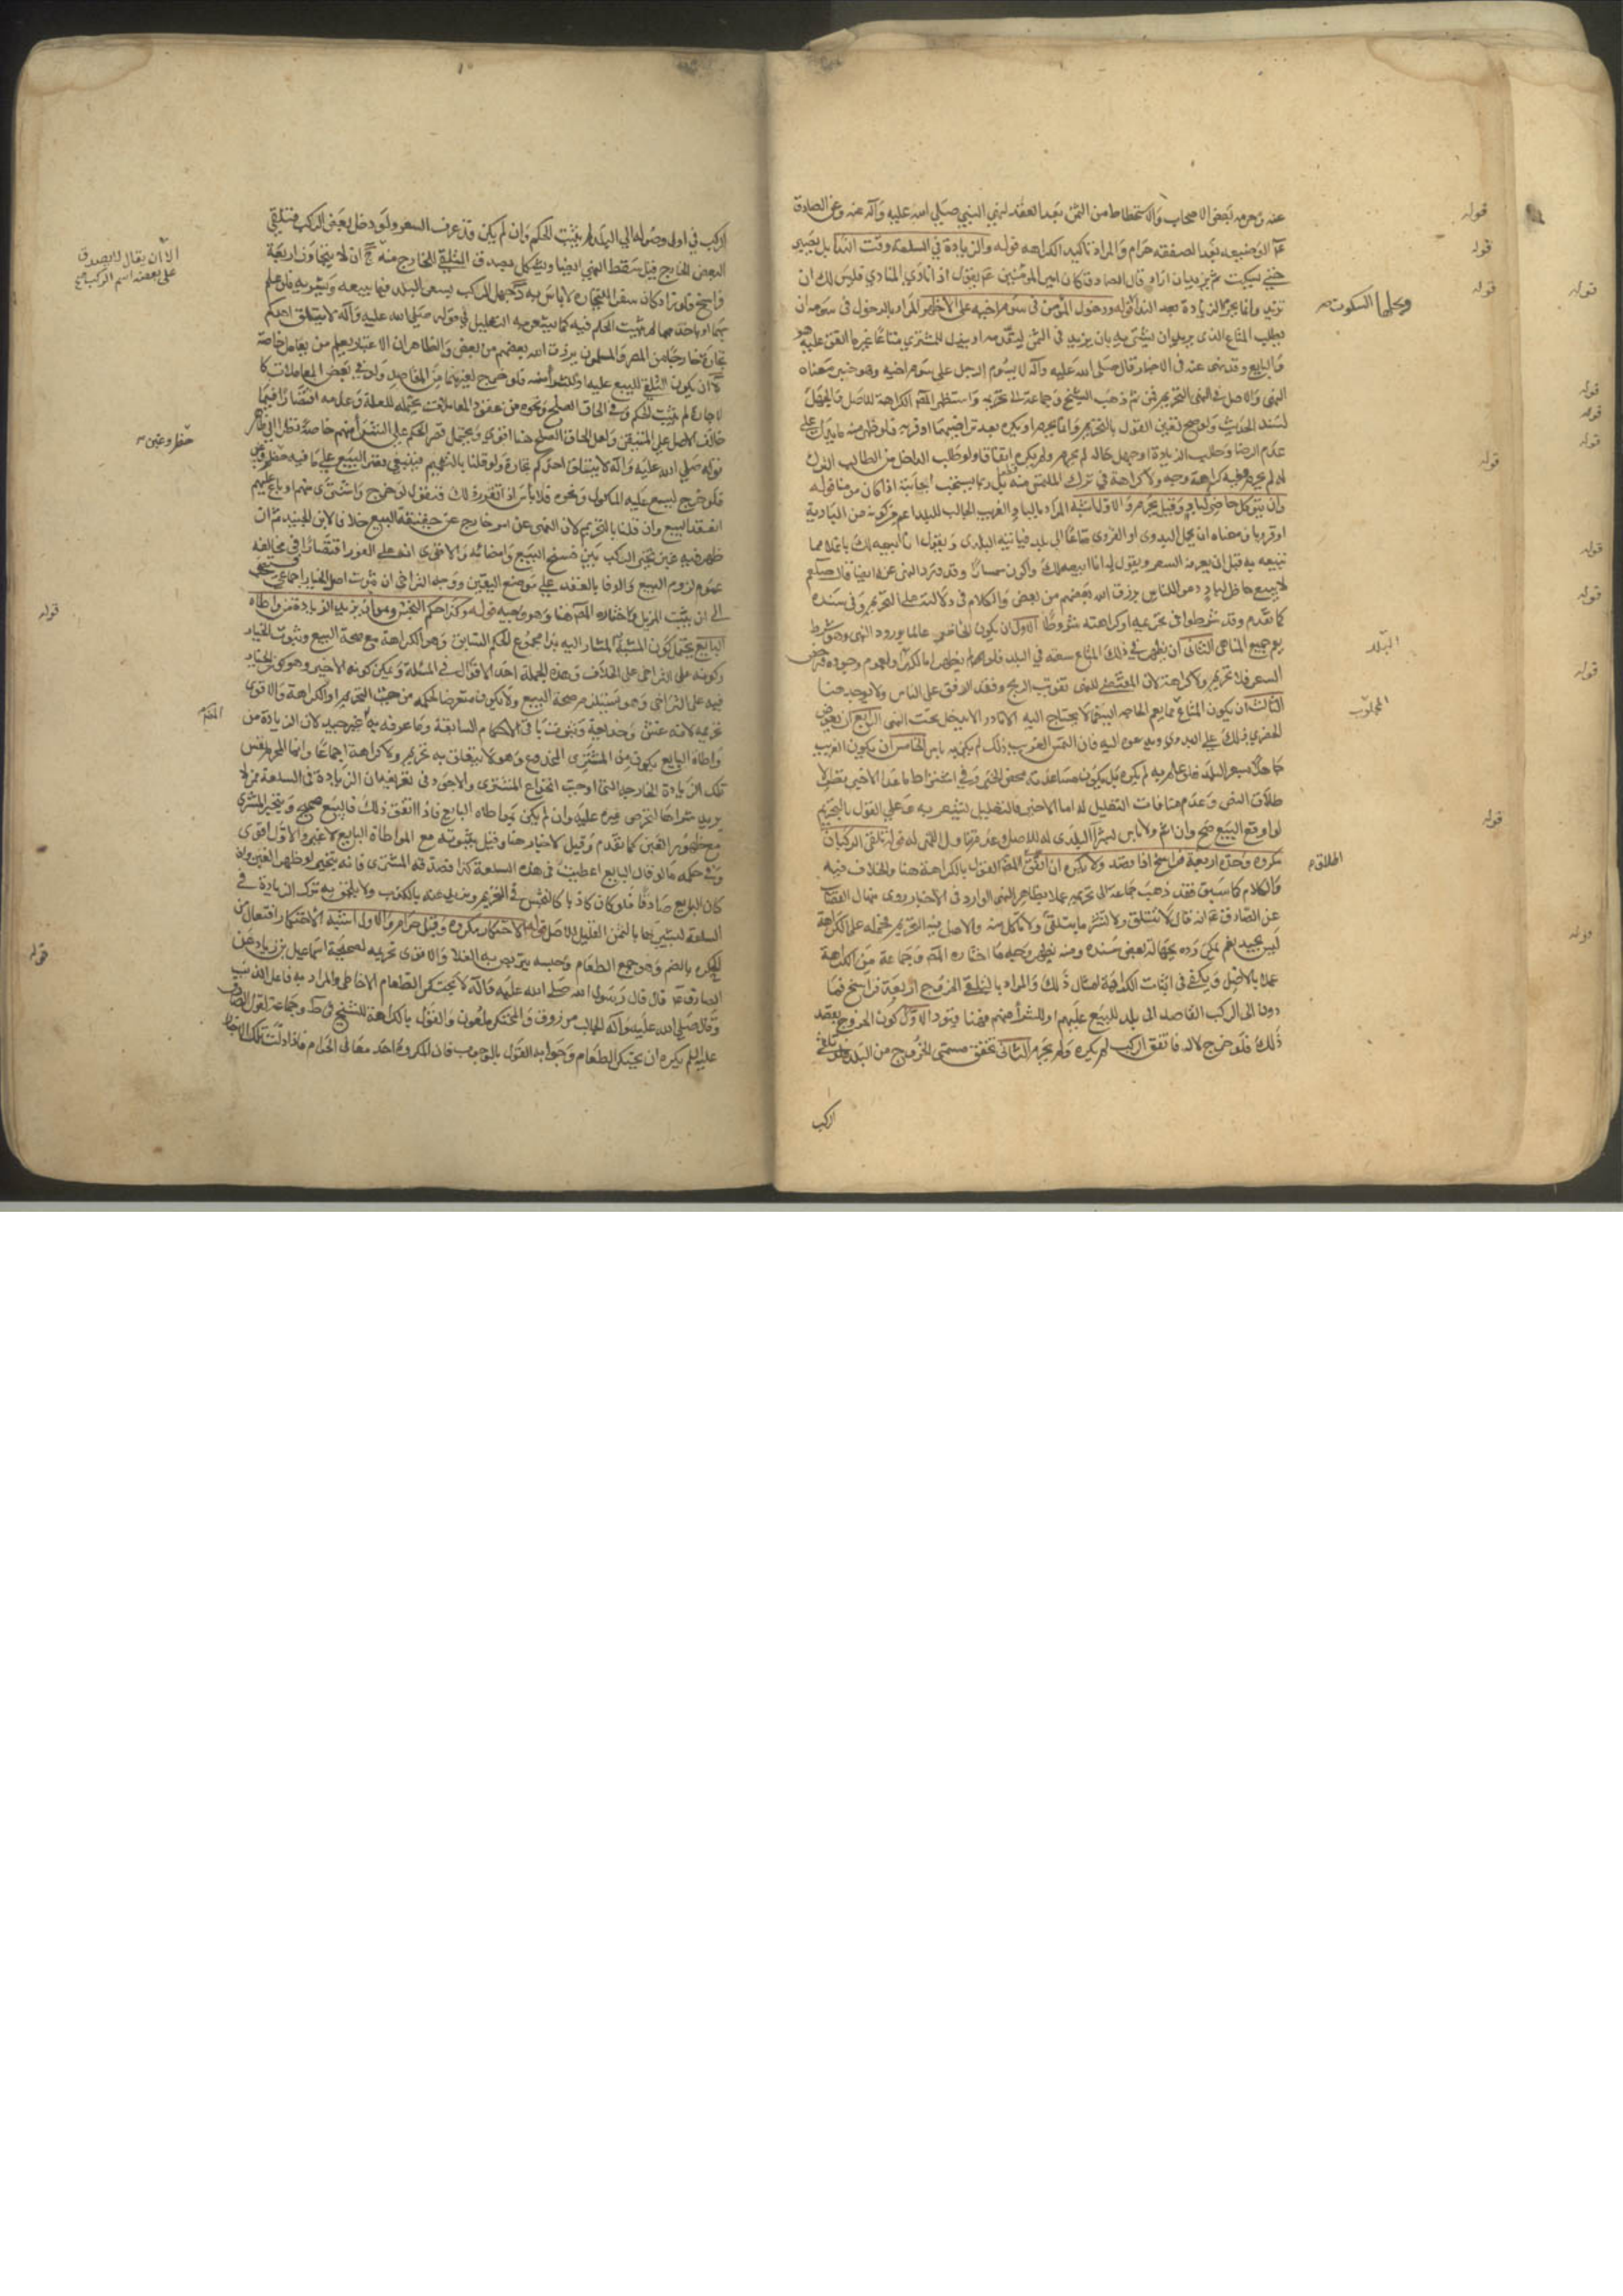 عنه وحرمه بعض الاصحاب والاستحطاط من الثمن بعد العقد لنهي النبي صلى الله عليه وآله عنه وعن الصادق
عم الوضيعه بعد الصفقه حرام والمراد تاكيد الكراهه قوله والزيادة في السلعة وقت الندا بل يصبر
حتى يسكت ثم يزيد ان اراد قال الصادق كان امير المؤمنين عم يقول اذا نادى المنادي فليس لك ان
تزيد وانما يحرم الزيادة بعد النداء قوله ودخول المؤمن في سوم اخيه على الاظهر المراد بالدخول في سومه ان
يطلب المتاع الذي يريد ان يشتريه بان يزيد في الثمن ليقدمه او يبذل للمشتري متاعا غير ما اتفق عليه هو
والبايع وقد نهى عنه في الاخبار قال صلى الله عليه وآله لا يسوم الرجل على سوم اخيه وهو خبر معناه
النهي والاصل في النهي التحريم فمن ثم ذهب الشيخ وجماعة الى تحريمه واستظهر المص الكراهة للاصل
لسند الحديث ولو صح تعين القول بالتحريم وانما يحرم او يكره بعد تراضيهما او قربه فلو ظهر منه ما يدل على
عدم الرضا وطلب الزيادة او جهل حاله لم يحرم ولم يكره اتفاقا ولو طلب الداخل من الطالب الترك
له لم يحرم وفي كراهته وجه ولا كراهة في ترك الملتمس منه بل ربما يستحب اجابته اذا كان مؤمنا قوله
وان يتوكل حاضر لباد وقيل يحرم والاول اشبه المراد بالبادي الغريب الجالب للبلد اعم من كونه من البادية
او قرويا ومعناه ان يحمل البدوي او القروي متاعا الى بلد فياتيه البلدي ويقول انا ابيعه لك باغلا مما
تبيعه به قبل ان يعرفه السعر ويقول له انا ابيعه لك واكون سمسارا وقد ورد النهي عنه ايضا قال صلعم
لا يبيع حاضر لباد دعوا الناس يرزق الله بعضهم من بعض والكلام في دلالته على التحريم وفي سنده
كما تقدم وقد شرطوا في تحريمه او كراهته شروطا الاول ان يكون الحاضر عالما بورود النهي وهو شرط
يعم جميع المناهي الثاني ان يظهر في ذلك المتاع سعة في البلد فلو لم يظهر اما لكبره او لعموم وجوده ورخص
السعر فلا تحريم ولا كراهة لان المقتضي للنهي تفويت الربح وفقد الرفق على الناس ولا يوجد هنا
الثالث ان يكون المتاع مما يعم الحاجه اليه فما لا يحتاج اليه الا نادرا لا يدخل تحت النهي الرابع ان يعرض
الحضري ذلك على البدوي ويدعوه اليه فان التمس الغريب ذلك لم يكن به باس الخامس ان يكون الغريب
جاهلا بسعر البلد فلو علم به لم يكره بل يكون مساعدته محض الخير وفي اشتراط ما عدا الاخير نظر لا
طلاق النص وعدم منافات التعليل له اما الاخير فالتعليل يشعر به وعلى القول بالتحريم
لو اوقع البيع صح وان اثم ولا باس بشراء البلدي له للاصل وعدم تناول النهي له قوله تلقى الركبان
مكروه وحده اربعة فراسخ اذا قصد ولا يكره ان اتفق اطلق المص القول بالكراهة هنا والخلاف فيه
والكلام كما سبق فقد ذهب جماعة الى تحريمه عملا بظاهر النهي الوارد في الاخبار روى منهال القصاب
عن الصادق عم انه قال لا تتلق ولا تشتر ما يتلقى ولا تاكل منه والاصل فيه التحريم فحمله على الكراهة
ليس بجيد نعم يمكن رده بجهالة بعض سنده ومنه يظهر وجه ما اختاره المص وجماعة من الكراهة
عملا بالاصل ويكفى في اثبات الكراهية امثال ذلك والمراد بالتلقي الخروج اربعة فراسخ فما
دون الى الركب القاصد الى بلد للبيع عليهم او للشراء منهم فهنا قيود الاول كون الخروج بقصد
ذلك فلو خرج لا له فاتفق الركب لم يكره ولم يحرم الثاني تحقق مسمى الخروج من البلد فلو تلقى
الركب
قوله
وعلى السكوت
البلد
المجلوب
اطلاق
الركب في اول وصوله الى البلد لم يثبت الحكم وان لم يكن قد عرف السعر ولو دخل بعض الركب فتلقى
البعض الخارج قبل سقط النهي ايضا ويشكل بصدق التلقي للخارج منه ج ان لا يتجاوز اربعة
فراسخ فلو زاد كان سفرا للتجارة لا باس به د جهل الركب بسعر البلد فيما يبيعه ويشتريه فلو علم
بهما او باحدهما لم يثبت الحكم فيه كما يشعر به التعليل في قوله صلى الله عليه وآله لا يتلق احدكم
تجارة خارجا من المصر والمسلمون يرزق الله بعضهم من بعض والظاهر ان الاعتبار بعلم من يعامل خاصة
ه ان يكون التلقي للبيع عليه او الشراء منه فلو خرج لغيرهما من المقاصد ولو في بعض المعاملات كا
لاجارة لم يثبت الحكم وفي الحاق الصلح ونحوه من عقود المعاملات يحتمله للعلة وعدمه اقتصارا فيما
خالف الاصل على المتيقن ولعل الحاق الصلح هنا اقوى ويحتمل قصر الحكم على الشراء منهم خاصة نظرا الى ظاهر
قوله صلى الله عليه وآله لا يتلق احدكم تجارة ولو قلنا بالتعميم فينبغي
فلو خرج لبيع عليه الماكول ونحوه فلا باس اذا تقرر ذلك فنقول لو خرج واشترى منهم او باع عليهم
انعقد البيع وان قلنا بالتحريم لان النهي عن امر خارج عن حقيقة البيع خلافا لابن الجنيد ثم ان
ظهر فيه غبن تخير الركب بين فسخ البيع وامضائه والاقوى انه على الفور اقتصارا في مخالفة
عموم لزوم البيع والوفا بالعقد على موضع اليقين ووجه التراخي ان ثبوت اصل الخيار اجماعي
الى ان يثبت المزيل وما اختاره المص هنا وهو وجيه قوله وكذا حكم النجش وهو ان يزيد لزيادة من واطاه
البايع يحتمل كون المشبه المشار اليه بذا مجموع الحكم السابق وهو الكراهة مع صحة البيع وثبوت الخيار
وكونه على التراخي على الخلاف وهذه الجملة احد الاقوال في المسئلة ويمكن كونه الاخير وهو كون الخيار
فيه على التراخي وهو يستلزم صحة البيع ولا يكون متعرضا لحكمه من حيث التحريم او الكراهة والاقوى
تحريمه لانه غش وخداع وثبوت باقي الاحكام السابقة وما عرفه به غير جيد لان الزيادة من
واطاه البايع يكون من المشتري المخدوع وهو لا يتعلق به تحريم ولا كراهة اجماعا وانما المحرم نفس
تلك الزيادة الخارجه التي اوجبت انخداع المشتري والاجود في تعريفه ان الزيادة في السلعة ممن لا
يريد شراءها ليحرص غيره عليه وان لم يكن بمواطاة البايع فاذا اتفق ذلك فالبيع صحيح ويتخير المشتري
مع ظهور الغبن كما تقدم وقيل لا خيار هنا وقيل بثبوته مع المواطاة البايع لا غير والاول اقوى
وفي حكمه ما لو قال البايع اعطيت في هذه السلعة كذا فصدقه المشتري فانه يتخير لو ظهر الغبن وان
كان البايع صادقا فلو كان كاذبا كالنجش في التحريم ويزيد عنه بالكذب ولا يلحق به ترك الزيادة في
السلعة ليشتريها بالثمن القليل للاصل قوله الاحتكار مكروه وقيل حرام والاول اشبه الاحتكار افتعال من
الحكرة بالضم وهو جمع الطعام وحبسه يتربص به الغلا والاقوى تحريمه لصحيحة اسماعيل بن زياد عن
الصادق عم قال قال رسول الله صلى الله عليه وآله لا يحتكر الطعام الا خاطئ والمراد به فاعل الذنب
وقال صلى الله عليه وآله الجالب مرزوق والمحتكر ملعون والقول بالكراهة للشيخ في ط وجماعة لقول الصادق
عليه السلم يكره ان يحتكر الطعام وجوابه القول بالموجب فان المكروه احد معاني الحرام فاذا دلت تلك الاخبار
الا ان يقال لا يصدق
على بعضه اسم الركب صح
قوله
قوله